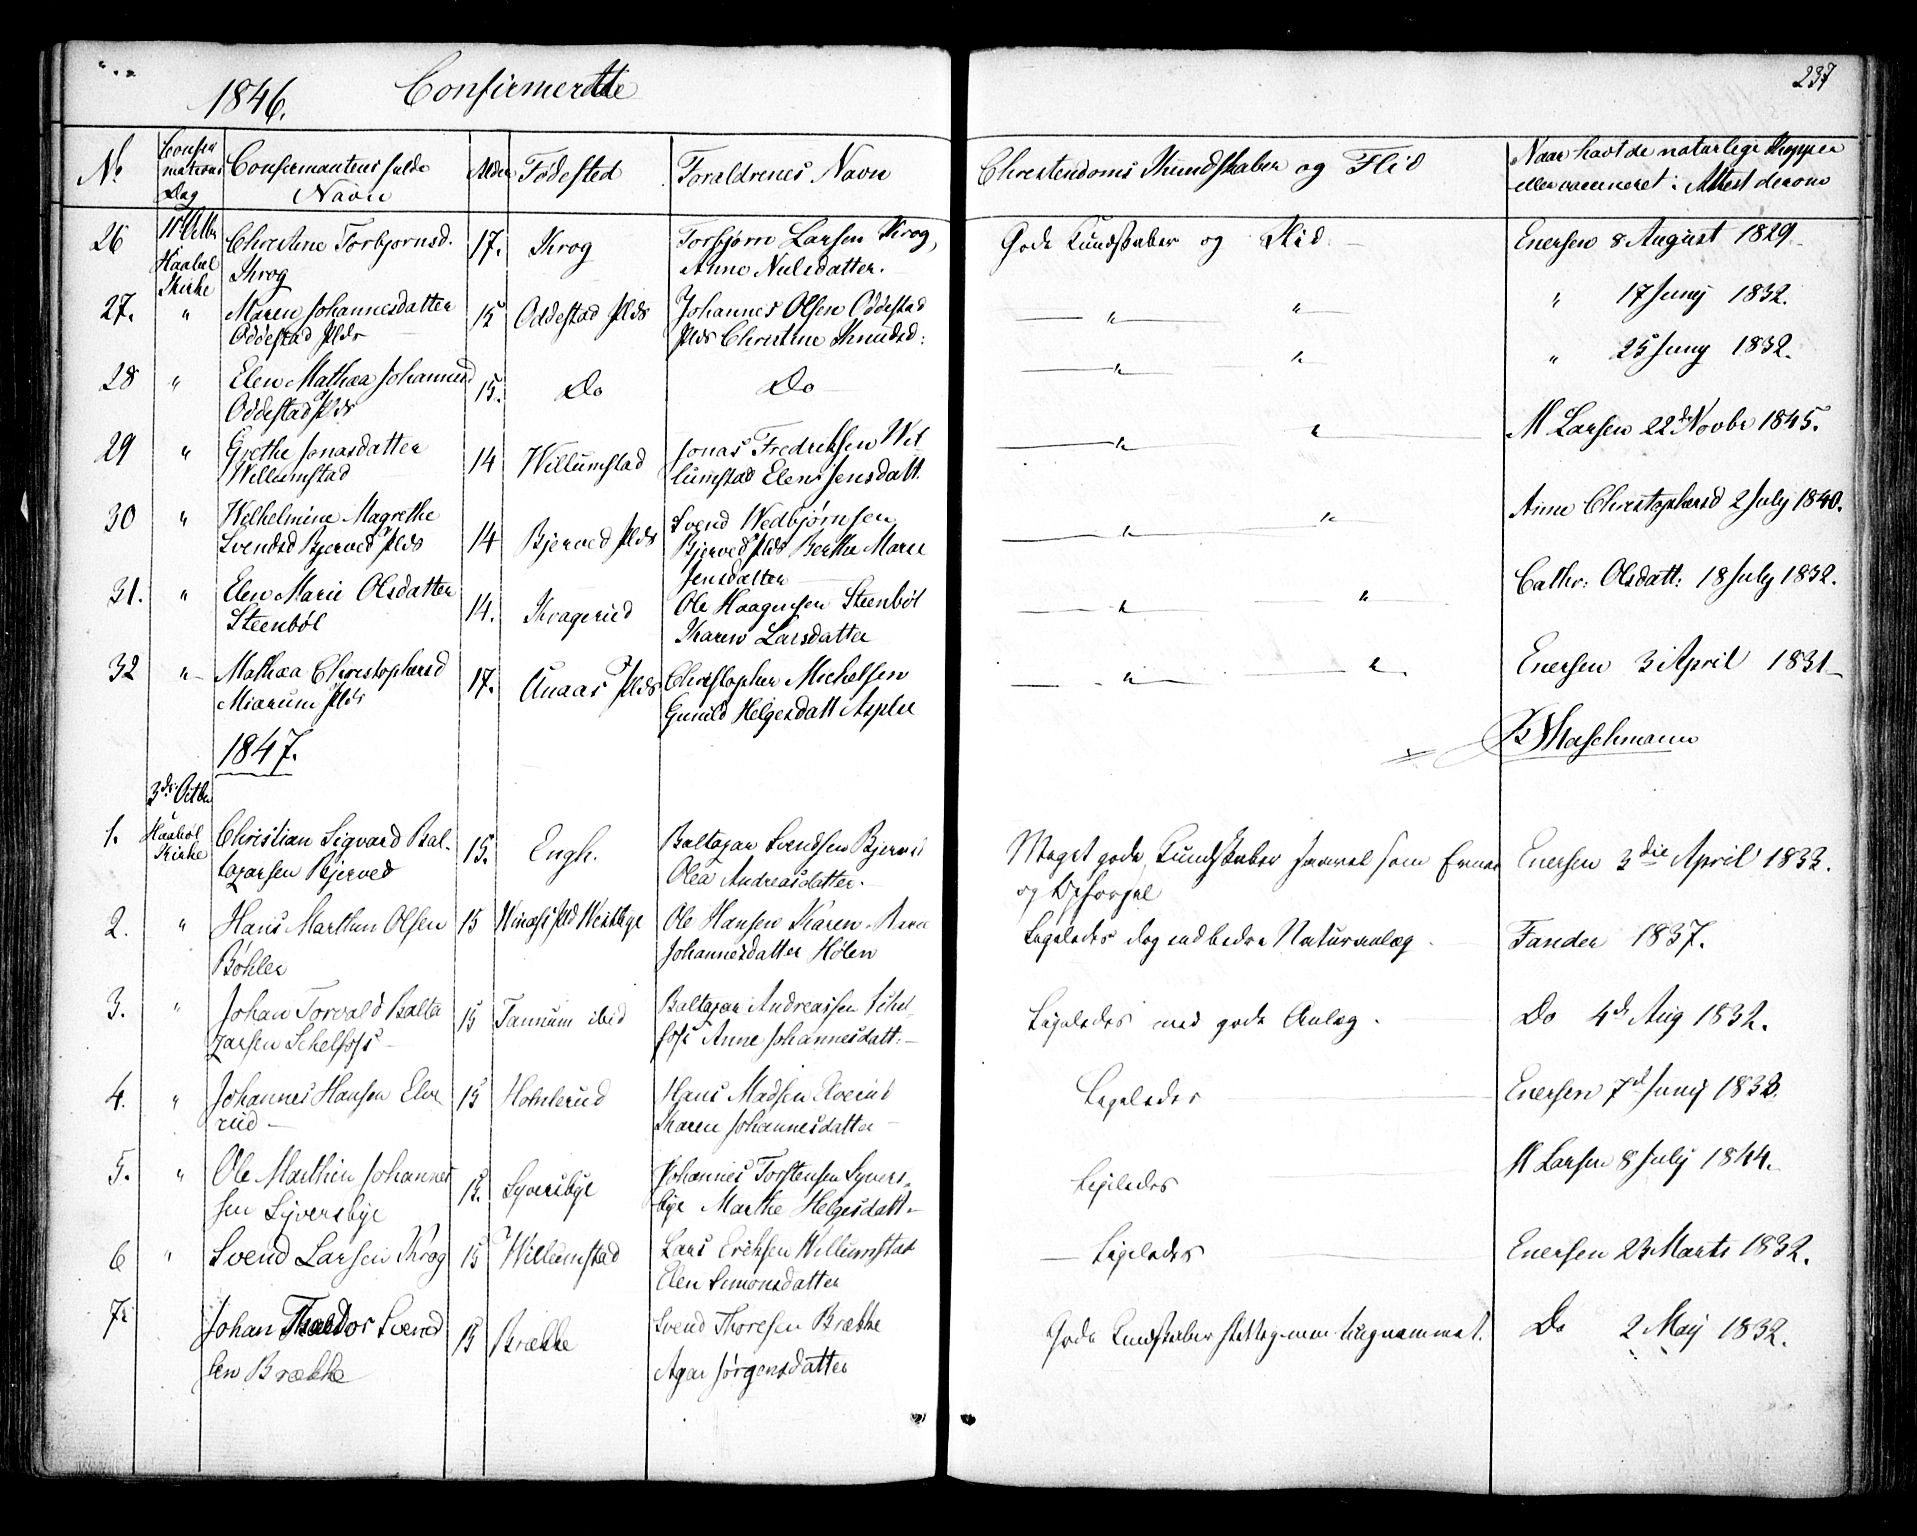 237
1846. Confirmerdte
No Confirmations Dag Confirmantens fulde Navn Alder Fødested Foraldrenes Navn Christendoms Kundskaber og Flid Naar havt de naturlige Kopper eller vaccineret: Attest derom
26 Haabøl Kirke Christine Torbjornsd. Krog 17. Krog Torbjørn Larsen Krog, Anne Nielsdatter. Gode Kundskaber og Flid. Enersen 8 August 1829.
27. " Maren Johannesdatter Oddestad Plds 15 Oddestad Plds Johannes Olsen Oddestad Plds Christine Knudsd: " " " 17 Junij 1832.
28 " Elen Mathea Johannesd Oddestad Plds 15. Do Do " " " 25 Juny 1832.
29 " Grethe Jonasdatter Willumstad 14 Willumstad Jonas Fredriksen Willumstad Elen Jensdatt. " " M Larsen 22d Novbr 1845.
30 " Wilhelmine Magrethe Svendsd Bjerved Plds 14 Bjerved Plds Svend Wedbjørnsen Bjerved Plds Berthe Marie Jensdatter " " Anne Christophersd 2 July 1840.
31. " Elen Marie Olsdatter Steenbøl 14. Kragerud Ole Haagensen Steenbøl Karen Larsdatter " " Cathr: Olsdatt: 18 July 1832.
32 " Mathea Christophersd Miærum Plds 17. Aunaas Plds Christopher Michelsen Gunild Helgesdatt Asplee " " Enersen 3 April 1831
1847.
3de Octbr
1. Haabøl Kirke Christian Sigvard Baltazarsen Bjerved 15. Engh. Baltazar Svendsen Bjerved Olea Andreasdatter. Meget gode Kundskaber saavel som Evner og Opførsel Enersen 3die April 1833.
2. " Hans Marthin Olsen Bøhler 15 Ole Hansen Karen Johannesdatter Hølen Ligeledes dog med bedre Naturanlæg Fander 1837.
3. " Johan Torvald Baltazarsen Schelfoss 15 Tannum ibid Baltazar Andreassen Schelfoss Anne Johannesdatt: Ligeledes med gode Anlæg. Do 4d Aug 1832.
4. " Johannes Hansen Elverud 15 Holmserud Hans Madsen Karen Johannesdatter Ligeledes Enersen 7d Junij 1833.
5. " Ole Marthin Johannessen Syversbye 15. Syversbye Johannes Torstensen Syversbye Marthe Helgesdatt Ligeledes M Larsen 8 July 1844.
6 " Svend Larsen Krog 15 Willumstad Lars Eriksen Willumstad Elen Simonsdatter Ligeledes Enersen 23 Marts 1832.
7. Johan Svendsen Brække 15 Brække Svend Thoresen Brække Agar Jørgensdatter Gode Kundskaber Do 2 Maij 1832.